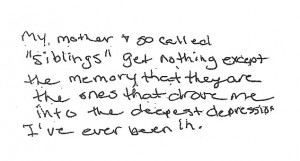 My, mother & so called
"siblings" get nothing except
the memory that they are
the ones that drove me
into the deepest depression
I've ever been in.